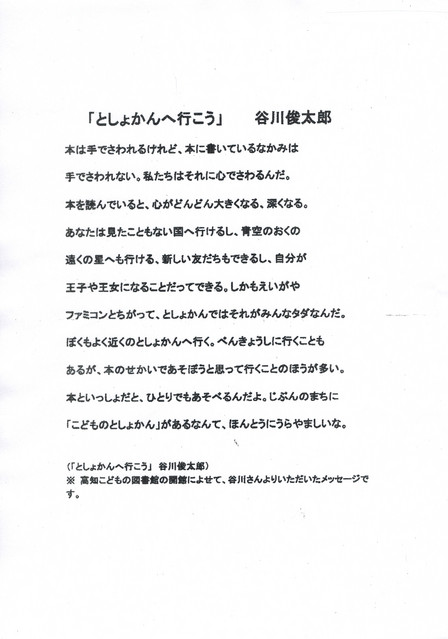 「としょかんへ行こう」　　谷川俊太郎
本は手でさわれるけれど、本に書いているなかみは
手でさわれない。私たちはそれに心でさわるんだ。
本を読んでいると、心がどんどん大きくなる、深くなる。
あなたは見たこともない国へ行けるし、青空のおくの
遠くの星へも行ける、新しい友だちもできるし、自分が
王子や王女になることだってできる。しかもえいがや
ファミコンとちがって、としょかんではそれがみんなタダなんだ。
ぼくもよく近くのとしょかんへ行く。べんきょうしに行くことも
あるが、本のせかいであそぼうと思って行くことのほうが多い。
本といっしょだと、ひとりでもあそべるんだよ。じぶんのまちに
「こどものとしょかん」があるなんて、ほんとうにうらやましいな。
（「としょかんへ行こう」　谷川俊太郎）
※ 高知こどもの図書館の開館によせて、谷川さんよりいただいたメッセージで
す。